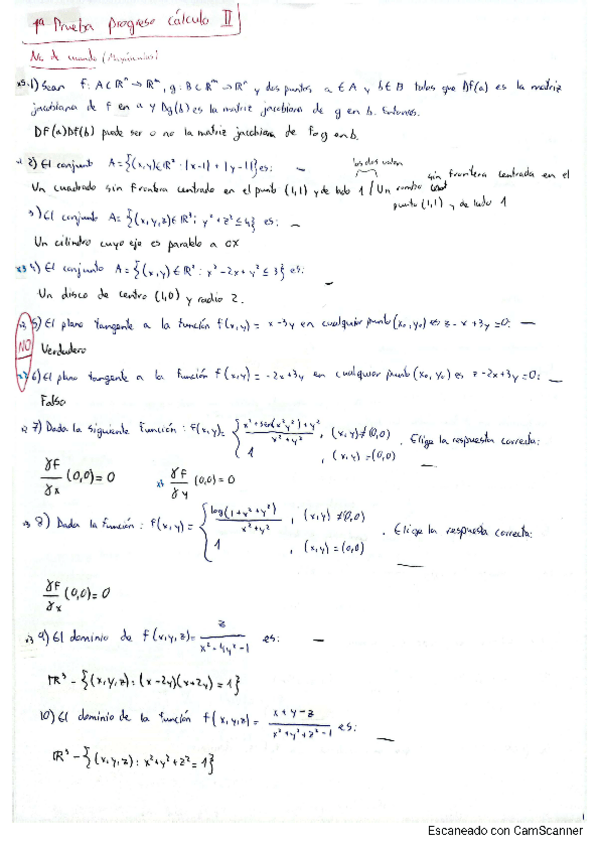 1ª Prueba progreso cálculo II
x5.1) Sean f: A⊂ℝⁿ→ℝᵐ, g: B⊂ℝᵐ→ℝⁿ y dos puntos a∈A y b∈B tales que Df(a) es la matriz
jacobiana de f en a y Dg(b) es la matriz jacobiana de g en b. Entonces.
DF(a)Df(b) puede ser o no la matriz jacobiana de fog en b.
2) El conjunto A={(x,y)∈ℝ²: |x-1|+|y-1|} es: —
los dos valen
sin frontera centrada en el
Un cuadrado sin frontera centrado en el punto (1,1) y de lado 1 / Un rombo
punto (1,1) y de lado 1
3) El conjunto A={(x,y,z)∈ℝ³: y²+z²≤4} es: —
Un cilindro cuyo eje es paralelo a OX
x3 4) El conjunto A={(x,y)∈ℝ²: x²-2x+y²≤3} es: —
Un disco de centro (1,0) y radio 2.
5) El plano tangente a la función f(x,y)=x-3y en cualquier punto (x₀,y₀) es z-x+3y=0: —
NO
Verdadero
6) El plano tangente a la función f(x,y)=-2x+3y en cualquier punto (x₀,y₀) es z-2x+3y=0: —
Falso
7) Dada la siguiente función: f(x,y)= { x²+sen(x²y²)+y² / x²+y² , (x,y)≠(0,0) . Elige la respuesta correcta:
1 , (x,y)=(0,0) —
γF/γx (0,0)=0 γF/γy (0,0)=0
8) Dada la función: f(x,y)= { log(1+x²+y²) / x²+y² , (x,y)≠(0,0) . Elige la respuesta correcta:
1 , (x,y)=(0,0) —
γF/γx (0,0)=0
x3 9) El dominio de f(x,y,z)= z / x²-4y²-1 es: —
ℝ³-{(x,y,z): (x-2y)(x+2y)=1}
10) El dominio de la función f(x,y,z)= x+y-z / x²+y²+z²-1 es: —
ℝ³-{(x,y,z): x²+y²+z²=1}
Escaneado con CamScanner